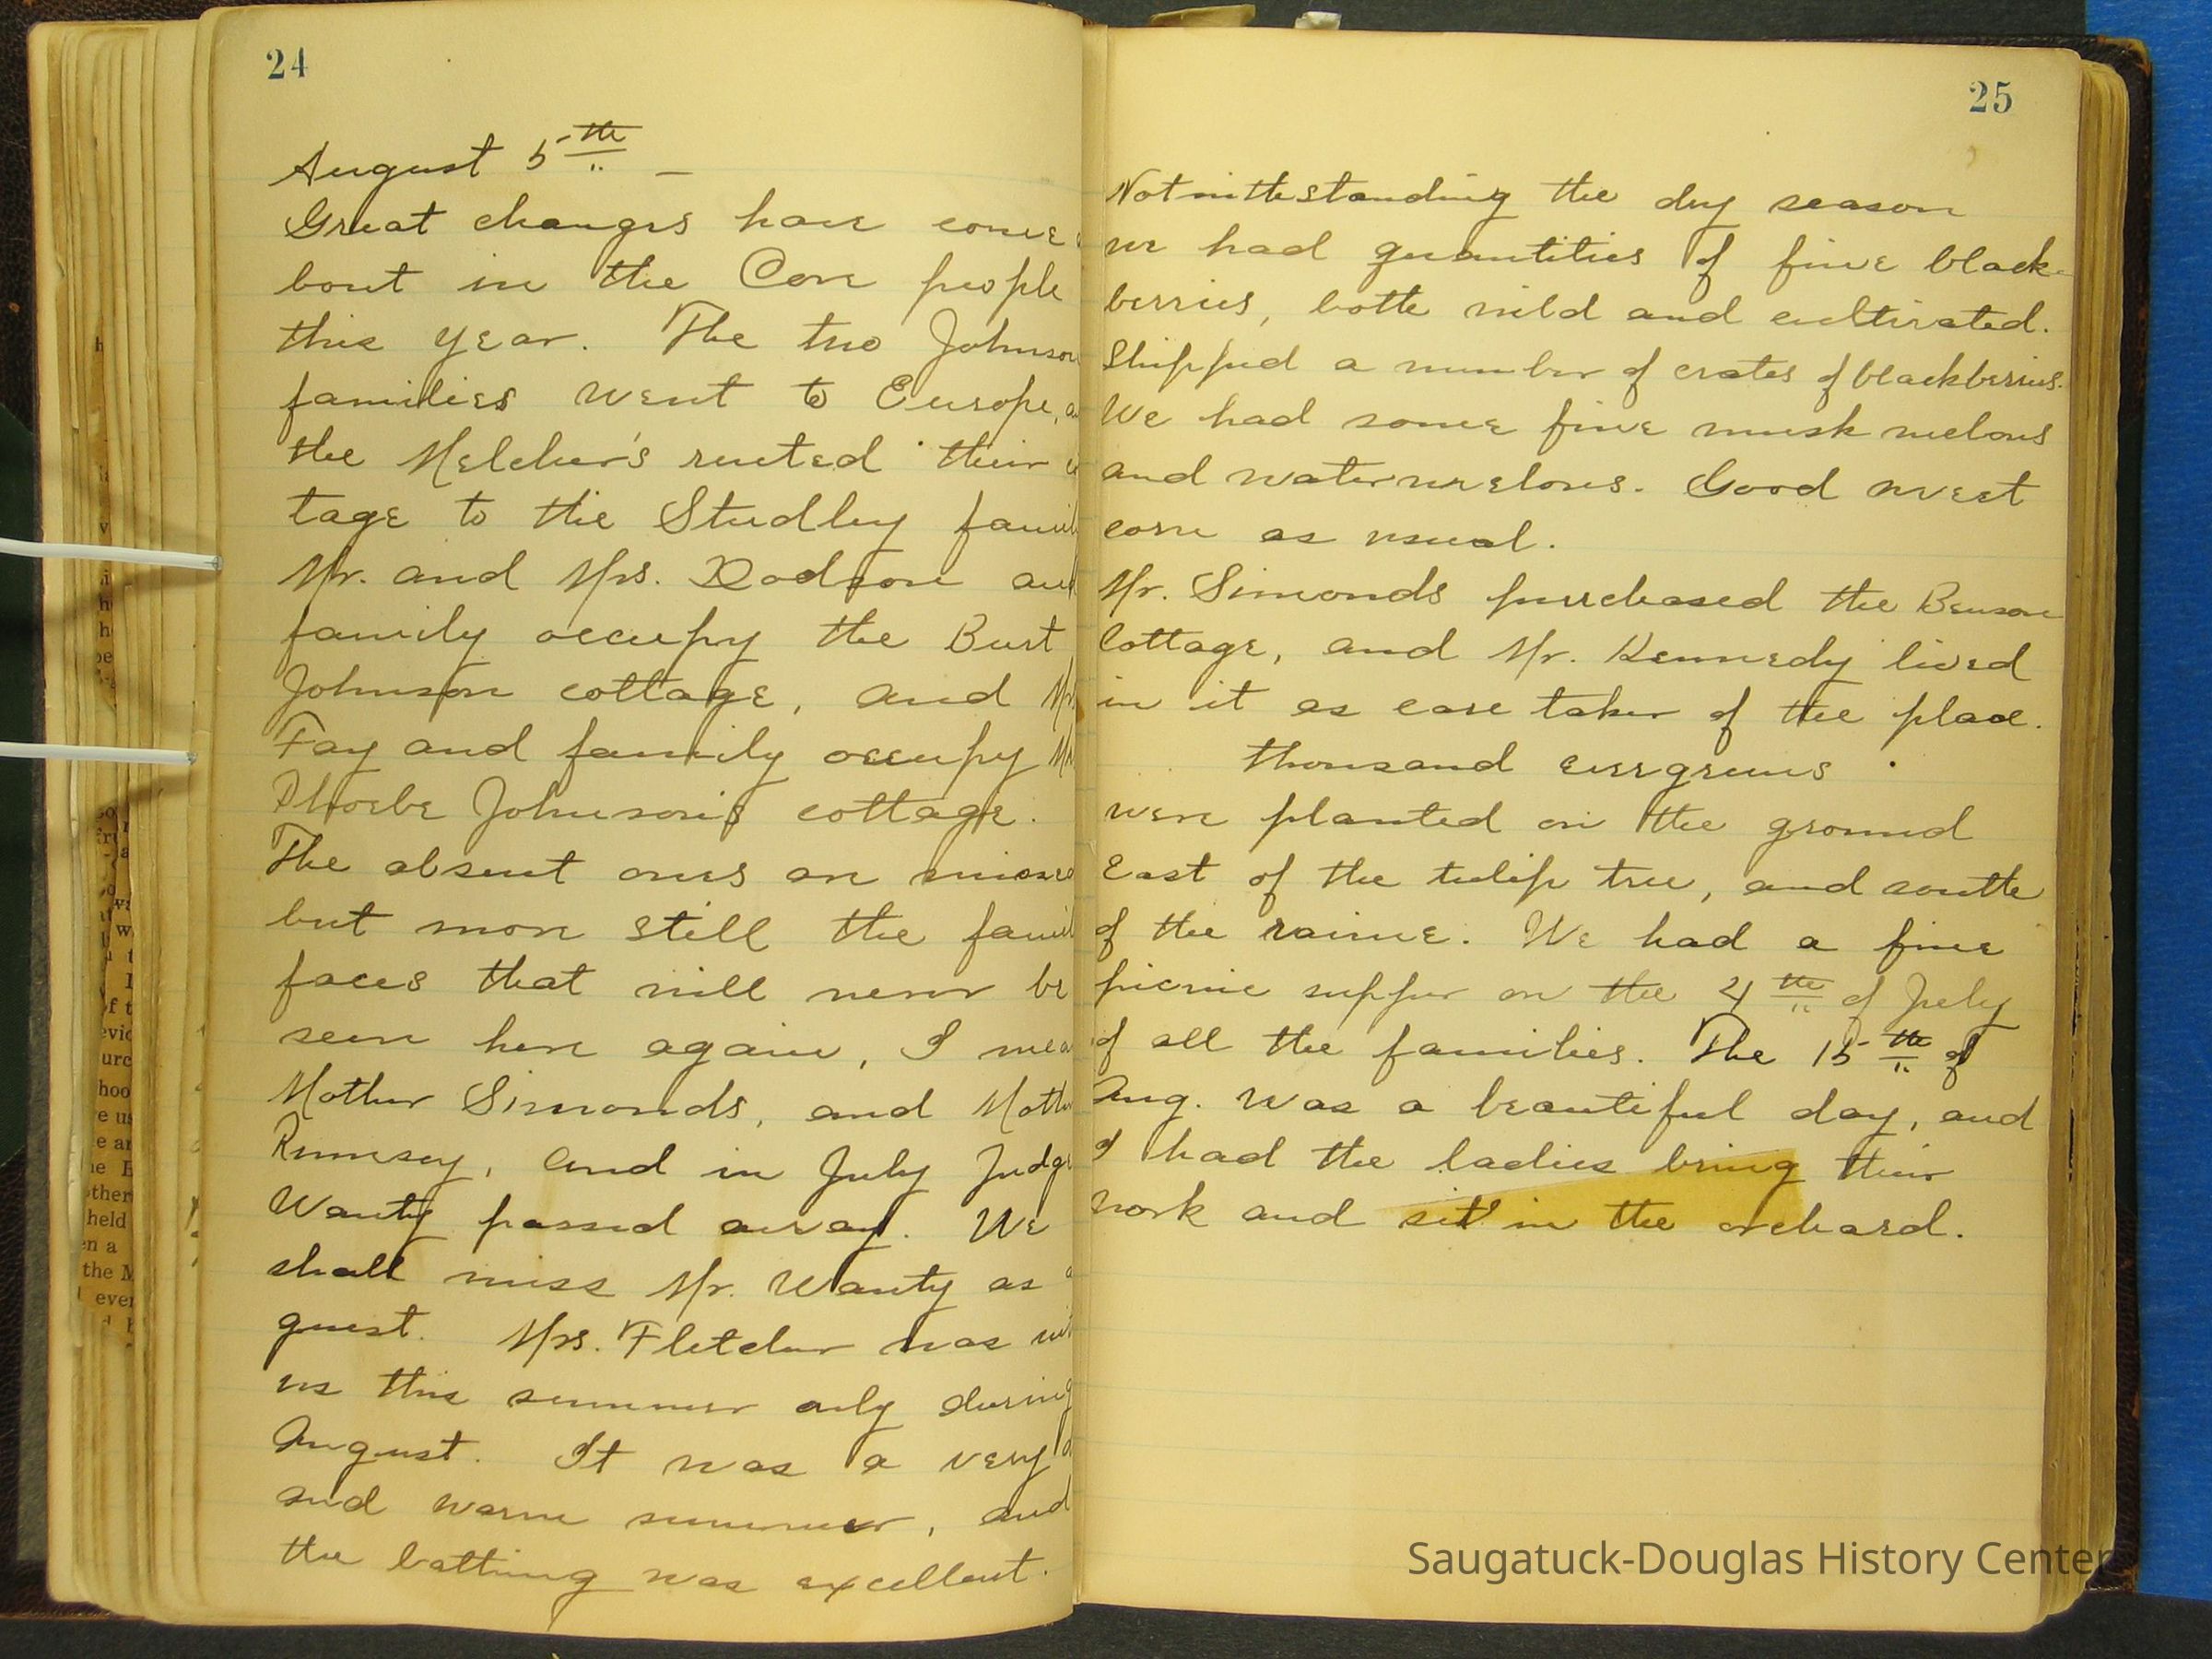 24
August 5th —
Great changes have come
bout in the Cove people
this year. The two Johnson
families went to Europe,
the Melcher's rented their
tage to the Studley
Mr. and Mrs. Dodson
family occupy the Burt
Johnson cottage, and
Fay and family occupy
Phoebe Johnson's cottage.
The absent ones are
but more still the
faces that will never be
seen here again, I
Mother Simonds, and
Rumsey, and in July Judge
Wanty passed away. We
shall miss Mr. Wanty as
guest. Mrs. Fletcher was
us this summer only during
August. It was a very
and warm summer, and
the bathing was excellent.
25
Notwithstanding the dry season
we had quantities of fine black-
berries, both wild and cultivated.
Shipped a number of crates of blackberries.
We had some fine musk melons
and watermelons. Good sweet
corn as usual.
Mr. Simonds purchased the Benson
Cottage, and Mr. Kennedy lived
in it as care taker of the place.
thousand evergreens
were planted on the ground
East of the tulip tree, and south
of the ravine. We had a fine
picnic supper on the 4th of July
of all the families. The 15th of
Aug. was a beautiful day, and
I had the ladies bring their
work and sit in the orchard.
Saugatuck-Douglas History Center